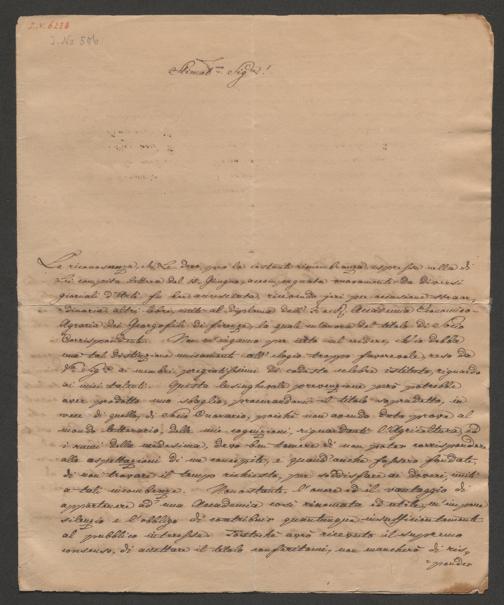 I. N. 6228
I. No 506
Stimatmo Sigre!
La riconoscenza, che Le devo, per la costante rimembranza espressa nella di
Lei compita lettera del 18 Giugno, accompagnata nuovamente da diversi
giornali d'Arti fu
altri libri, unito al diploma dell' Accademia Economico
Agraria dei Georgofili di firenze, la quale mi onora del titolo di Socio
Corrispondente. Non m'inganno per certo nel vedere, ch'io debba
una tal distinzione unicamente all' elogio troppo favorevole, reso da
ai membri pregiatissimi di codesto celebre istituto, riguardo
ai miei talenti. Questa lusinghevole prevenzione però potrebbe
aver prodotto uno sbaglio, procurandomi il titolo sopradetto, in
vece di quello, di Socio Onorario, poichè non avendo dato prove al
mondo letterario, delle mie cognizioni, riguardanti l'Agricoltura, ed
i rami della medesima, devo ben temere di non poter corrispondere
alle aspettazioni di me concepite, e quand'anche fossero fondate,
di non trovare il tempo richiesto, per soddisfare ai doveri, uniti
a tali incombenze. Nonostante, l'onore ed il vantaggio di
appartenere ad una Accademia così rinomata ed utile, m'impone
silenzio e l'obbligo di contribuir quantunque insufficientemente
al pubblico interesse. Tostochè avrò ricevuto il supremo
consenso, di accettare il titolo conferitomi, non mancherò di ris,
pondere